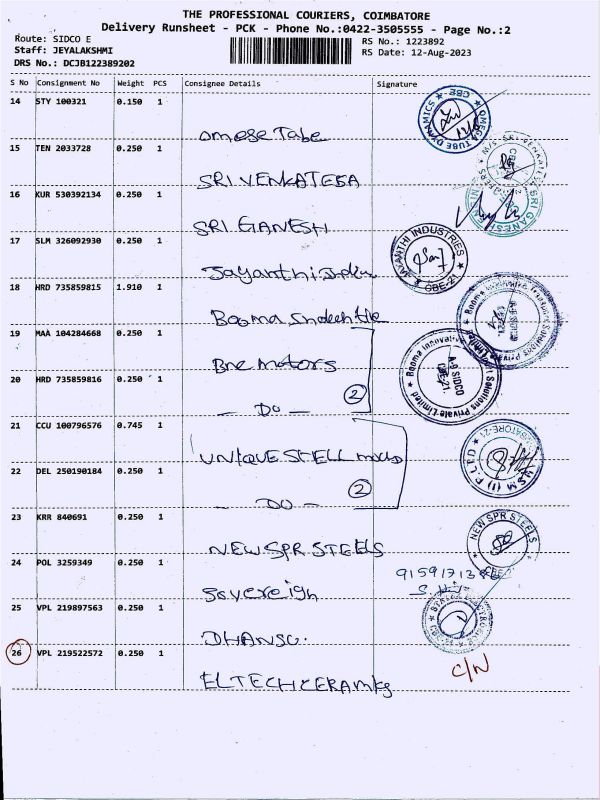 THE PROFESSIONAL COURIERS, COIMBATORE
Delivery Runsheet - PCK - Phone No.:0422-3505555 - Page No.:2
Route: SIDCO E
RS No.: 1223892
Staff: JEYALAKSHMI
RS Date: 12-Aug-2023
DRS No.: DCJB122389202
S No Consignment No Weight PCS Consignee Details Signature
14 STY 100321 0.150 1
OMEGA TUBE DYNAMICS CBE
omege Tabe
15 TEN 2033728 0.250 1
SRI VENKATESA
16 KUR 530392134 0.250 1
SRI GANESH
SRI GANESH
17 SLM 326092930 0.250 1
JAYANTHI INDUSTRIES CBE-21
Jayanthi Indu
18 HRD 735859815 1.910 1
Booma
19 MAA 104284668 0.250 1
Booma Innovative Solutions Private Limited
A-9 SIDCO
CBE-21.
Bne motors
20 HRD 735859816 0.250 1
2
— DO —
21 CCU 100796576 0.745 1
UNIQUE STELL
22 DEL 250190184 0.250 1
U.S.M (I) P.LTD
2
— DO —
23 KRR 840691 0.250 1
NEW SPR STEELS
NEW SPR STEELS
24 POL 3259349 0.250 1
Sovereigh
25 VPL 219897563 0.250 1
DHANSU.
26 VPL 219522572 0.250 1
C/N
ELTECH CERAMKS